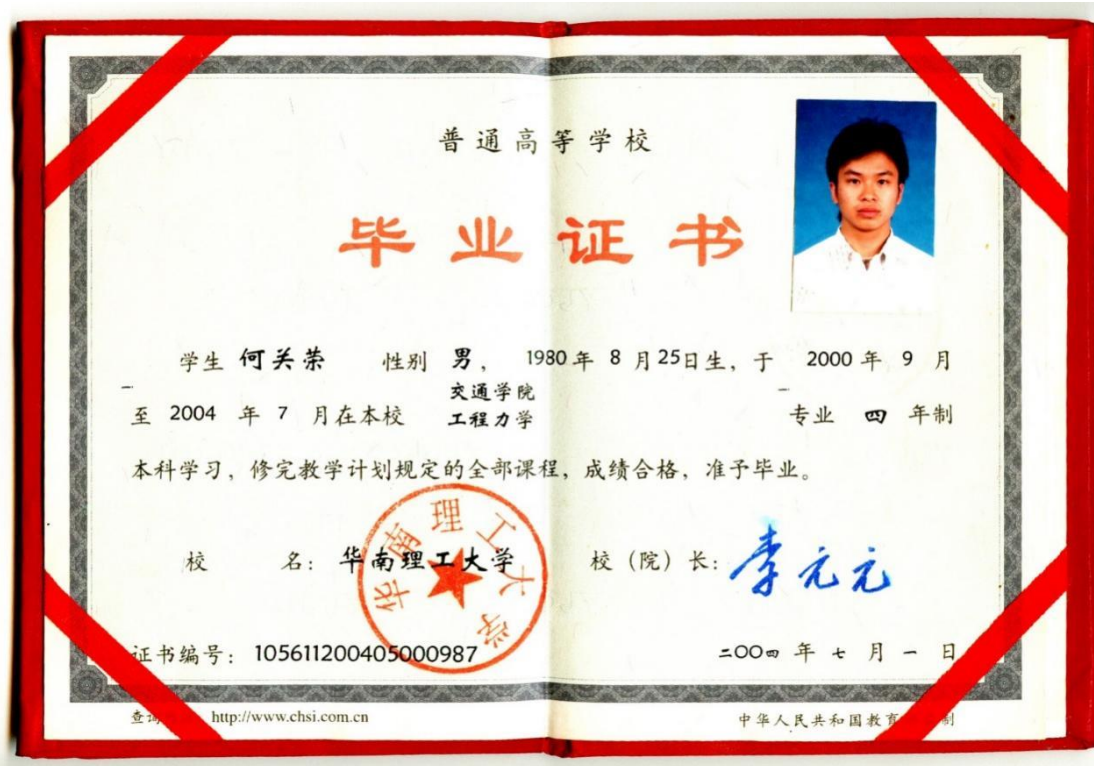 普通高等学校
毕业证书
学生 何关荣 性别 男， 1980年 8 月25日生，于 2000 年 9 月
交通学院
至 2004 年 7 月在本校 工程力学 专业 四 年制
本科学习，修完教学计划规定的全部课程，成绩合格，准予毕业。
校 名：华南理工大学 校（院）长：李元元
华南理工大学
证书编号：105611200405000987 二〇〇四 年 七 月 一 日
查询 http://www.chsi.com.cn 中华人民共和国教育 制